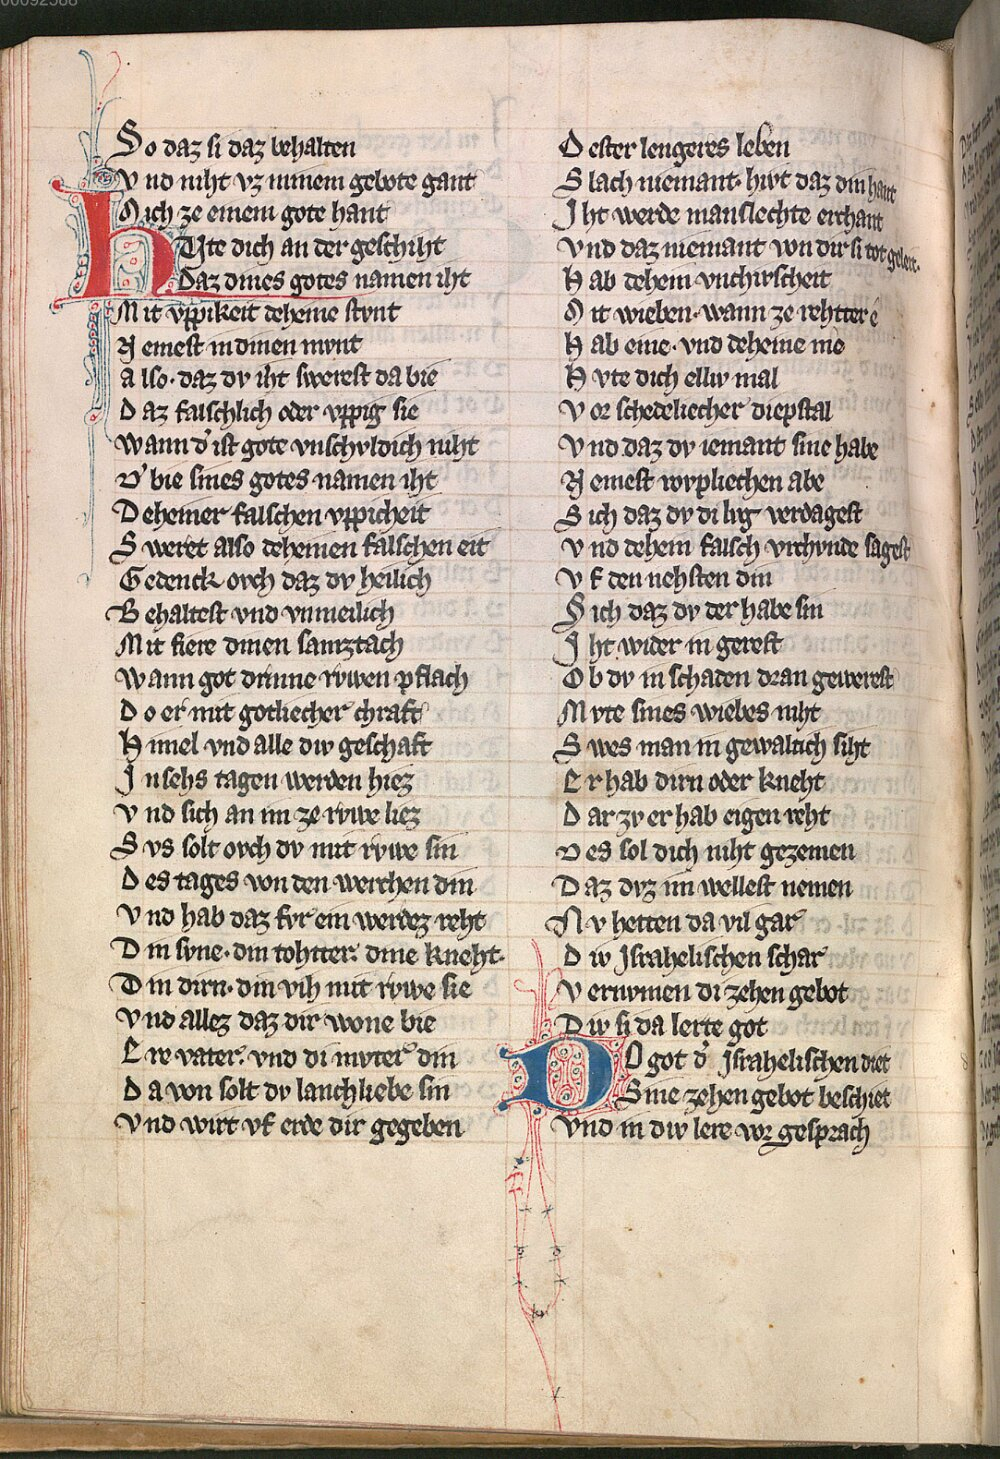 00092588
So daz si daz behalten
Vnd niht vz minem gebote gant
Mich ze einem gote hant
HVte dich an der geschiht
Daz dines gotes namen iht
Mit vppikeit deheine stvnt
Nemest in dinen mvnt
Also · daz dv iht swerest da bie
Daz falschlich oder vppig sie
Wann d' ist gote vnschvldich niht
D' bie sines gotes namen iht
Deheiner falschen vppicheit
Sweret also deheinen falschen eit
Gedenck ovch daz dv heilich
Behaltest vnd vnmeilich
Mit fiere dinen samztach
Wann got drinne rvwen pflach
Do er mit gotliecher chraft
Himel vnd alle div geschaft
In sehs tagen werden hiez
Vnd sich an im ze rvwe liez
Svs solt ovch dv mit rvwe sin
Des tages von den werchen din
Vnd hab daz fvr ein werdez reht
Din svne · din tohtter · dine kneht ·
Din dirn · din vih mit rvwe sie
Vnd allez daz dir wone bie
Ere vater · vnd di mvter din
Da von solt dv lanchliebe sin
Vnd wirt vf erde dir gegeben
Dester lengeres leben
Slach niemant · hvt daz din hant
Iht werde manslechte erchant
Vnd daz niemant von dir si tot geleit ·
Hab dehein vnchvscheit
Mit wieben · wann ze rehtter e
Hab eine · vnd deheine me
Hvte dich elliv mal
Vor schedeliecher diepstal
Vnd daz dv iemant sine habe
Nemest rovpliechen abe
Sich daz dv di lvg verdagest
Vnd dehein falsch vrchvnde sagest
Vf den nehsten din
Sich daz dv der habe sin
Iht wider in gerest
Ob dv in schaden dran gewerest
Mvte sines wiebes niht
Swes man in gewaltich siht
Er hab dirn oder kneht
Dar zv er hab eigen reht
Des sol dich niht gezemen
Daz dvz im wellest nemen
Nv hetten da vil gar
Div Israhelischen schar
Vernvmen di zehen gebot
Div si da lerte got
DO got d' Israhelischen diet
Sine zehen gebot beschiet
Vnd in div lere vor gesprach